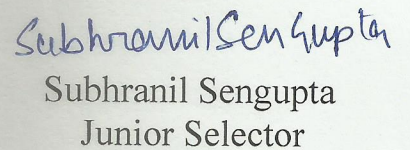 Subhranil Sengupta
Subhranil Sengupta
Junior Selector